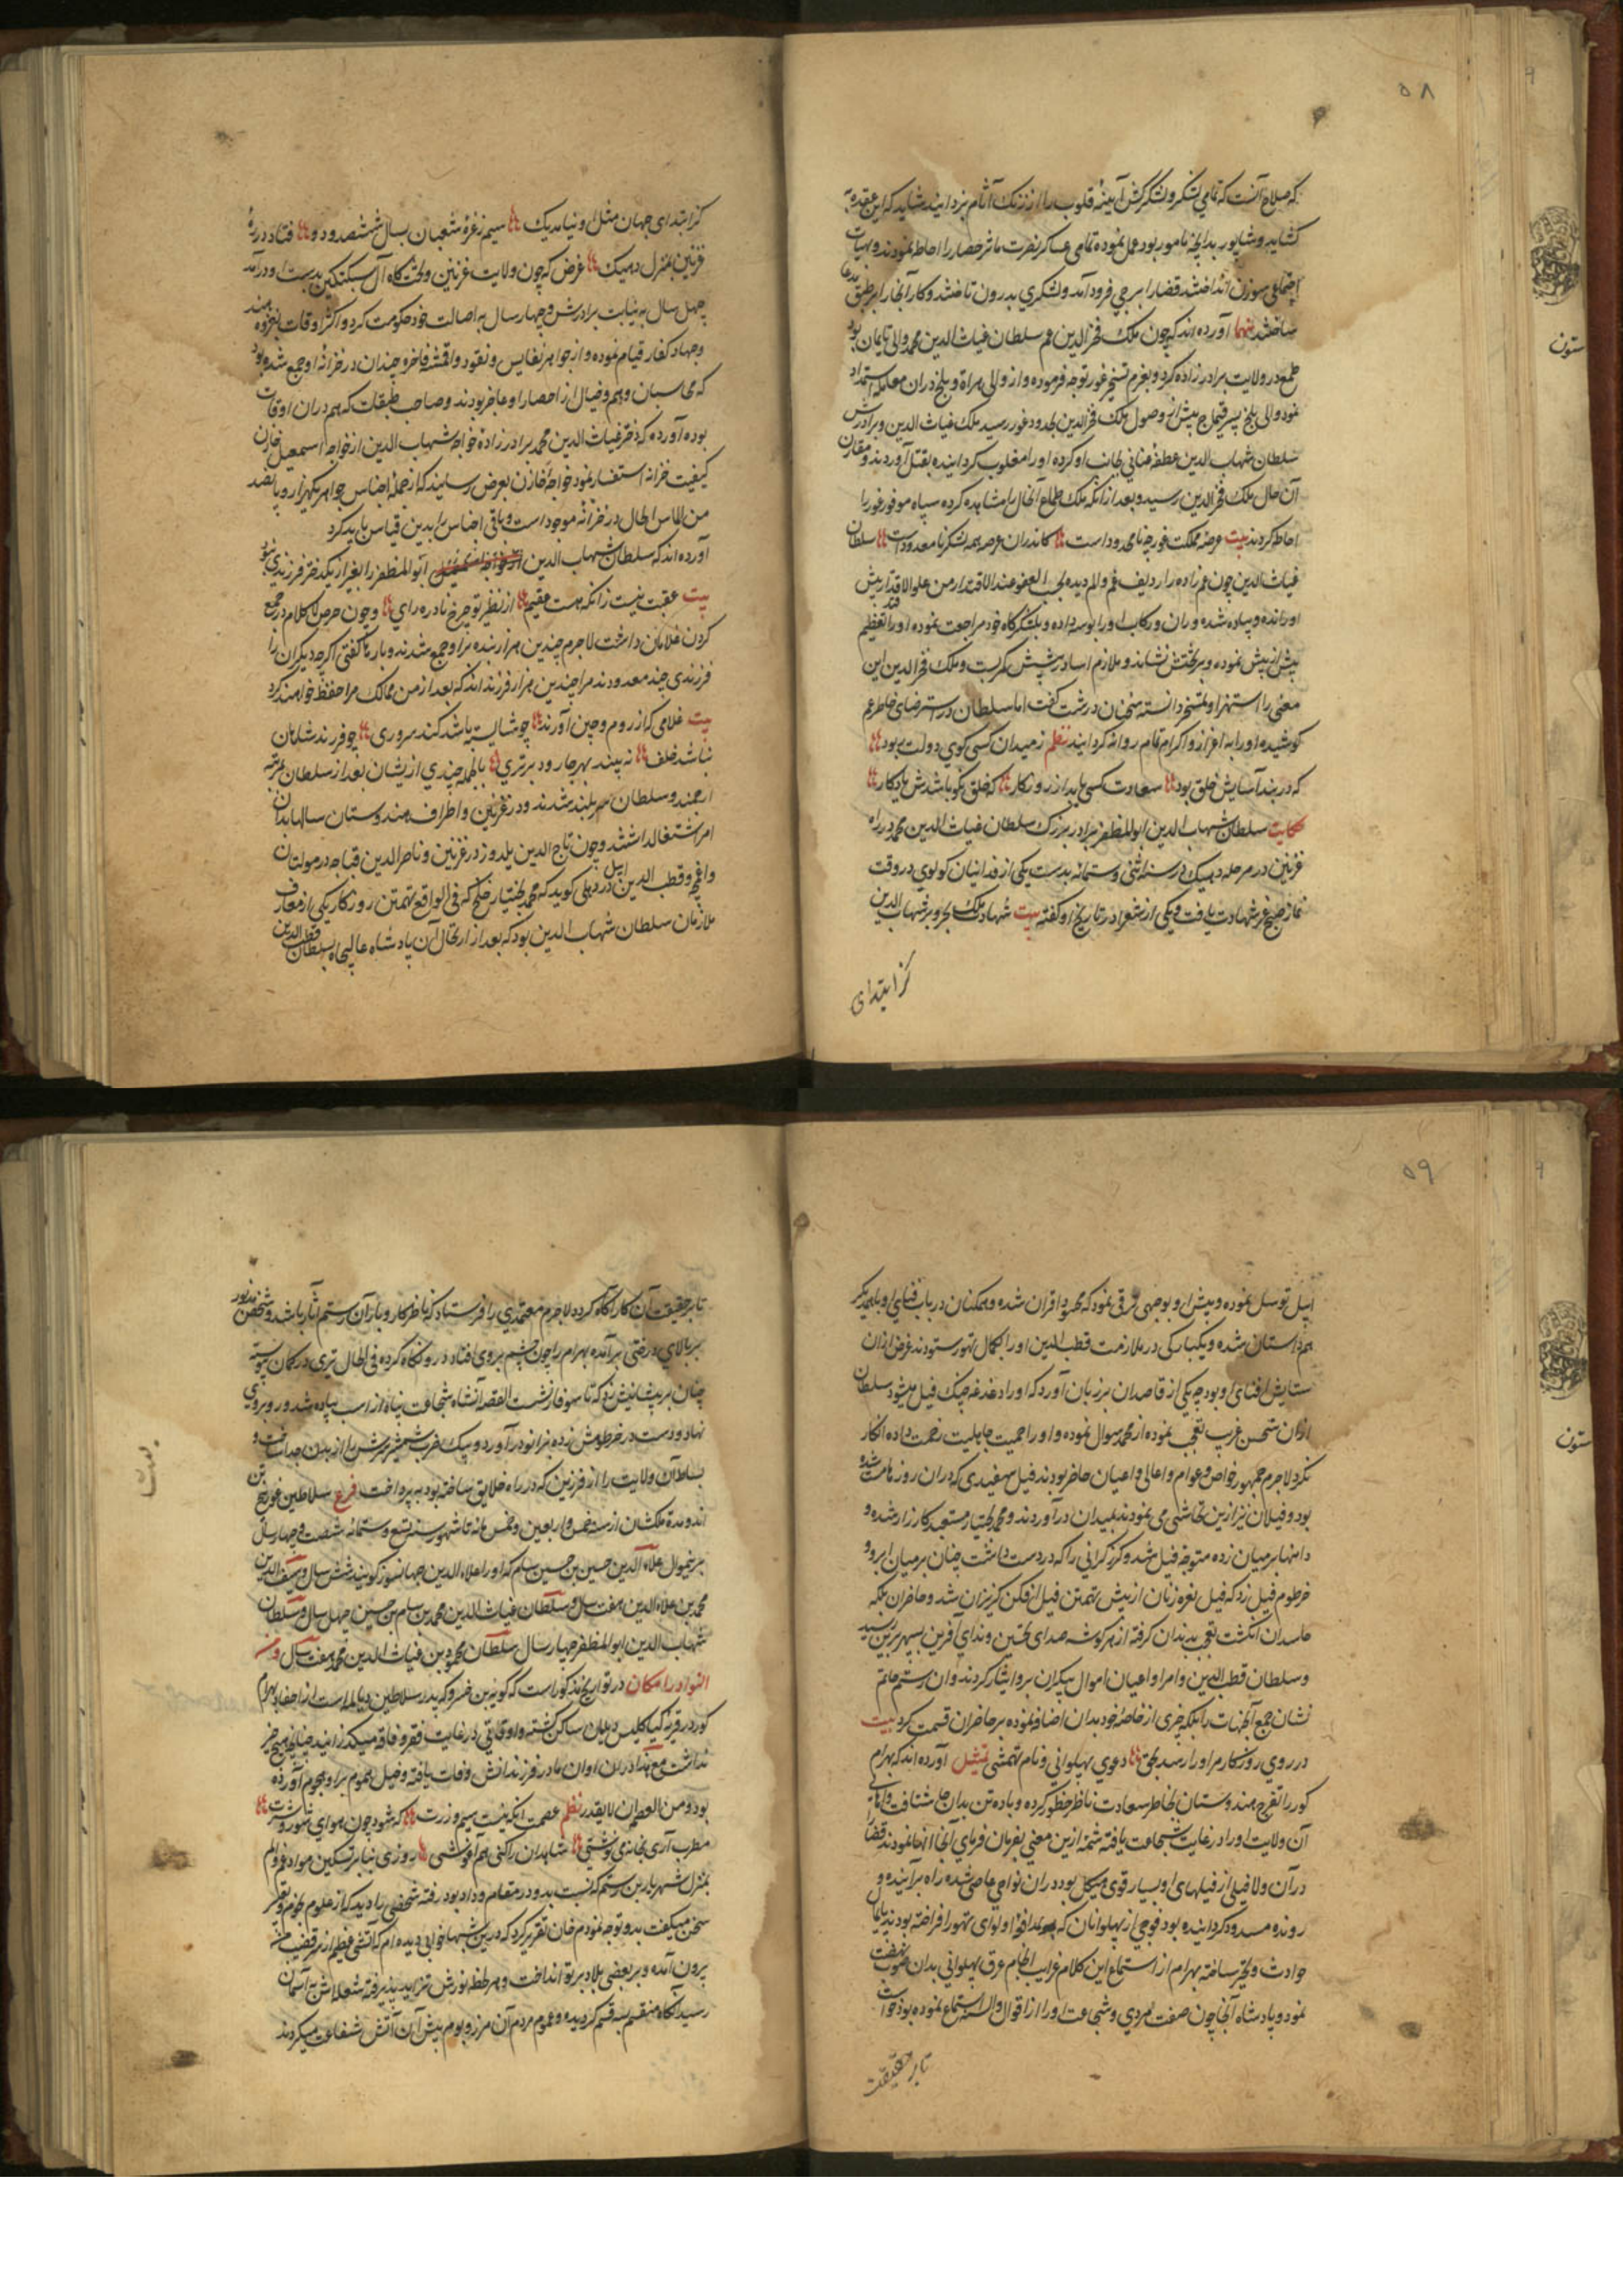 ۵۸
که صلاح آنست که تمامی لشکر و لشکرکش آیینهٔ قلوب را از زنک آثام بزدایند شاید که این عقده
کشاید و شاپور بدانچه نامور بود عمل نموده تمامی عساکر نصرت مآثر حصار را احاطه نمودند و بهیأت
اجتماعی سوزن انداختند قضا را برجی فرود آمد و لشکری بدرون تاختند و کار آنجا را بر طبق مدعا
ساختند آورده اند که چون ملک فخرالدین عم سلطان غیاث الدین محمد والی بامیان بود
طمع در ولایت برادرزاده کرد و بعزم تسخیر غور توجه فرموده و از والی هراة و بلخ دران معامله استمداد
نمود والی بلخ پسر قیماج پیش از وصول ملک فخرالدین بحدود غور رسید ملک غیاث الدین و برادرش
سلطان شهاب الدین عطف عنانی بجانب او کرده او را مغلوب کردانیده بقتل آوردند و مقارن
آن حال ملک فخرالدین رسید و بعد از آنکه ملک طماع آنحال را مشاهده کرده سپاه موفور غور را
احاطه کردند بیت عرصهٔ مملکت غور چه نامحدود است کاندران عرصه همه لشکر نامعدود است سلطان
غیاث الدین چون عم زاده را ردیف غم و الم دیده بحسب العفو عند الاقتدار من علو الاقتدار پیش
او رانده و پیاده شده و ران و رکاب او را بوسه داده و بلشکرکاه خود مراجعت نموده او را تعظیم
بیش از پیش نموده و بر تختش نشاند و ملازم آسا در پیشش کمر بست و ملک فخرالدین این
معنی را استهزا و تمسخر دانسته سخنان درشت کفت اما سلطان در استرضای خاطر عم
کوشیده او را به اعزاز و اکرام تمام روانه کردانید نظم ز میدان کسی کوی دولت ربود
که در بند آسایش خلق بود سعادت کسی یابد از روزکار که خلق نکو باشدش یادکار
حکایت سلطان شهاب الدین ابوالمظفر برادر بزرک سلطان غیاث الدین محمد در راه
غزنین در مرحله دمیک در سنه اثنی و ستمائه بدست یکی از فدائیان کولوی در وقت
نماز صبح عز شهادت یافت و یکی از شعرا در تاریخ او کفته بیت شهادت ملک بحر و بر شهاب الدین
کز ابتدای
کز ابتدای جهان مثل او نیامد یک سیم ز غرهٔ شعبان بسال ششصد و دو فتاد در ره
غزنین بمنزل دمیک غرض که چون ولایت غزنین و تختگاه آل سبکتکین بدست او درآمد
چهل سال به نیابت برادرش و چهار سال به اصالت خود حکومت کرد و اکثر اوقات بغزوه هند
و جهاد کفار قیام نموده و از جواهر نفایس و نقود و اقمشه فاخره چندان در خزانهٔ او جمع شده بود
که محاسبان وهم و خیال از احصار او عاجز بودند و صاحب طبقات که هم دران اوقات
بوده آورده که دختر غیاث الدین محمد برادرزادهٔ خواجه شهاب الدین از خواجه اسمعیل خازن
کیفیت خزانه استفسار نمود خواجه خازن بعرض رسانید که از جمله اجناس جواهر یکهزار و پانصد
من الماس الحال در خزانه موجود است و باقی اجناس را بدین قیاس باید کرد
آورده اند که سلطان شهاب الدین ابوالمظفر را بغیر از یکدختر فرزندی نبود
بیت عقبت نیست زانکه هست عقیم از نظیر تو چرخ نادره رای و چون حرص لاکلام در جمع
کردن غلامان داشت لاجرم چندین هزار بنده بر او جمع شدند و بارها کفتی اکرچه دیکران را
فرزندی چند معدودند مرا چندین هزار فرزند اند که بعد از من ممالک مرا حفظ خواهند کرد
بیت غلامی که از روم و چین آورند چو شایسته باشد کند سروری چو فرزند شاهان
نباشد خلف نه بیند بهر جا رود برتری بالجمله چندی ازیشان بعد از سلطان مرتبه
ارجمند و سلطان سربلند شدند و در غزنین و اطراف هندوستان سالها بدان
امر اشتغال داشتند و چون تاج الدین یلدوز در غزنین و ناصرالدین قباجه در مولتان
و اوچه و قطب الدین ایبل در دهلی کوید که محمد بختیار خلج که فی الواقع تهمتن روزکار یکی از معارف
ملازمان سلطان شهاب الدین بود که بعد از ارتحال آن پادشاه عالیجاه بسلطان قطب الدین
ستون
۵۹
ایبل توسل نموده و پیش او بوجهی ترقی نمود که محسود اقران شده و همکنان در باب فنای او با همدیکر
همداستان شده و یکبارکی در ملازمت قطب الدین او را بکمال تهور ستودند غرض ازان
ستایش افنای او بود چه یکی از قاصدان بر زبان آورد که او را دغدغه جنک فیل میشود سلطان
ازان سخن غریب تعجب نموده از محمد سوال نموده و او را حمیت جاهلیت رخصت نداده انکار
نکرد لاجرم جمهور خواص و عوام و اعالی و اعیان حاضر بودند فیل سفیدی که دران روزها مست شده
بود و فیلان نیز ازین تحاشی می نمودند بمیدان درآوردند و محمد بختیار مستعد کارزار شده و
دامنها بر میان زده متوجه فیل شد و کرز کرانی را که در دست داشت چنان بر میان ابرو و
خرطوم فیل زد که فیل نعره زنان از پیش تهمتن فیل افکن کریزان شد و حاضران بلکه
حاسدان انکشت تعجب بدندان کرفته از هر کوشه صدای تحسین و ندای آفرین بسپهر برین رسید
و سلطان قطب الدین و امرا و اعیان اموال بیکران برو ایثار کردند و آن رستم حاتم
نشان جمع آنجهات را بلکه چیزی از خاصهٔ خود بدان اضافه نموده بر حاضران قسمت کرد بیت
در روی روزکار مر او را رسد بحق دعوی پهلوانی و نام تهمتنی تمثیل آورده اند که بهرام
کور را تفرج هندوستان بخاطر سعادت مناظر خطور کرده و باده تن بدان جا شتافت والی
آن ولایت او را در غایت شجاعت یافته شمهٔ ازین معنی بفرمان فرمای آنجا انها نمودند قضا را
در آن ولا فیلی از فیلهای او بسیار قوی هیکل بود دران نواحی عاصی شده راه بر آینده و
رونده مسدود کردانیده بود فوجی از پهلوانان که بمدافعهٔ او لوای تهور افراخته بودند پایمال
حوادث و تحیر ساخته بهرام از استماع این کلام غرایب انجام عرق پهلوانی بدان صوب نهضت
نمود و پادشاه آنجا چون صفت مردی و شجاعت او را از اقوال و السنه استماع نموده بود خواست
تا بر حقیقت
تا بر حقیقت آن کار آکاه کردد لاجرم معتمدی را فرستاد که ناظر کار و بار آن رستم آثار باشد و شخص مذکور
بر بالای درختی برآمده بهرام را چون چشم بر وی افتاد درو نکاه کرده فی الحال تیری در کمان پیوسته
چنان بر پیشانیش زد که تا سوفار نشست القصه آن شاه شجاعت پناه از اسب پیاده شد و رو بروی
نهاد و دست در خرطومش زده بزانو درآورد و بیک ضرب شمشیر سرش را از بدن جدا ساخت و
بساط آن ولایت را از فرزین که در راه خلایق ساخته بود به پرداخت فرع سلاطین غور پنج تن
اند و مدة ملکشان از سنه خمس و اربعین و خمس مائه تا شهور سنه تسع و ستمائه شصت و چهار سال
برینموال علاء الدین حسین بن حسین سام که او را علاء الدین جهانسوز کویند شش سال و سیف الدین
محمد بن علاء الدین هفت سال و سلطان غیاث الدین محمد بن سام بن حسین چهل سال و سلطان
شهاب الدین ابوالمظفر چهار سال سلطان محمود بن غیاث الدین محمد هفت سال و من
النوادر امکان در تواریخ مذکور است که بویه بن خسرو که پدر سلاطین دیالمه است از احفاد بهرام
کور در قریه کیاکلیس دیلمان ساکن کشته و اوقاتی در غایت فقر و فاقه میکذرانید چنانچه هیچ چیز
نداشت مع هذا دران اوان مادر فرزندانش وفات یافته و خیل هموم بر او هجوم آورده
بود و من العصمة ان لا یقدر نظم عصمت آنکه نیست سیم و زرت که شود چون هوای شور و شرت
مطرب آری بخانه می نوشی شاهدان را کنی هم آغوشی روزی بنابر تسکین مواد غم و الم
بمنزل شهریار بن رستم که نسبت بدو در مقام وداد بود رفته شخصی را دید که از علوم نجوم و تعبیر
سخن میکفت بدو توجه نمودم خان تقریر کرد که درین شبها خوابی دیده ام که آتشی عظیم از سر قضیب من
بیرون آمده و بر بعضی بلاد پرتو انداخت و هر لحظه نورش تزاید پذیرفته شعله اش به آسمان
رسید آنکاه منقسم به سه قسم کردیده و عموم مردم آن مرز و بوم پیش آن آتش شفاعت میکردند
ستون